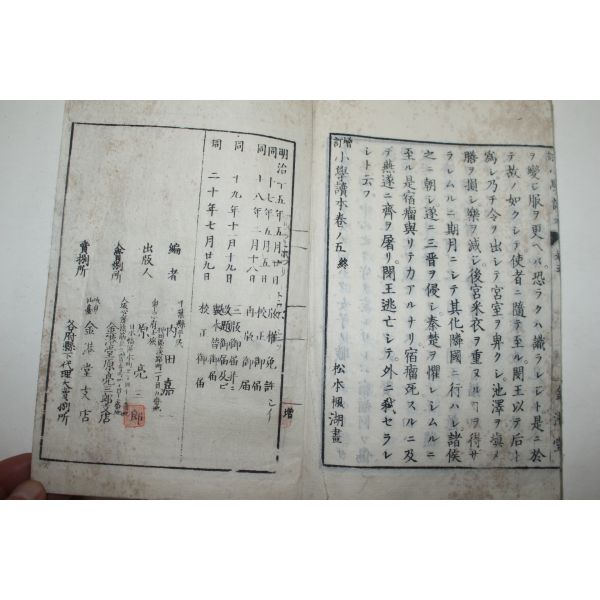 ヲ變ヒ服ヲ更ヘバ恐ラクハ識ラレシト是ニ於
テ故ノ如クシテ使者ニ隨テ至ル閔王以テ后ト
爲シ乃チ令ヲ出シテ宮室ヲ卑クシ池澤ヲ塡メ
膳ヲ損シ樂ヲ減シ後宮采衣ヲ重ヌルヿヲ得ザ
ラシムルニ期月ニシテ其化隣國ニ行ハレ諸侯
之ニ朝シ遂ニ三晋ヲ侵シ秦楚ヲ懼レシムルニ
至ル是宿瘤與リテ力アルナリ宿瘤死スルニ及
テ燕遂ニ齊ヲ屠リ閔王逃亡シテ外ニ弑セラレ
シト云フ
增訂小學讀本卷ノ五終 松本楓湖畫
明治十五年五月廿日版權免許
同十七年五月五日校正御届
同十八年二月十八日再版御届
同十九年十月十九日三版御届并ニ改題御届及ビ製本皆御届
同二十年七月廿九日校正御届
編者 内田嘉一
出版人 原亮三郎
發賣所 金港堂原亮三郎店
金港堂支店
賣捌所 各府縣下代理大賣捌所